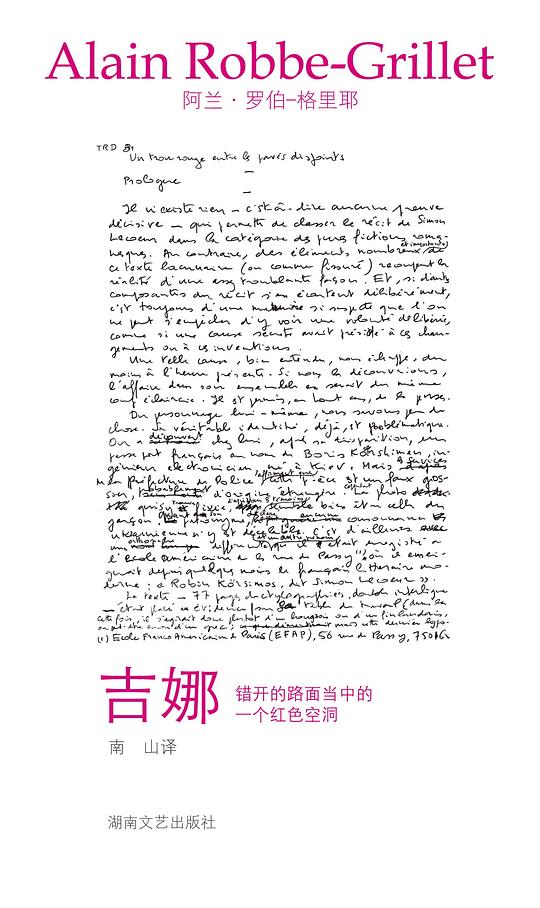 Alain Robbe-Grillet
阿兰·罗伯-格里耶
TRD
Un trou rouge entre les pavés disjoints
Prologue
Il n'existe rien – c'est-à-dire aucune preuve
décisive – qui permette de classer le récit de Simon
Lecœur dans la catégorie des pures fictions roma-
nesques. Au contraire, des éléments nombreux et importants de
ce texte lacunaire (ou comme fissuré) recoupent la
réalité d'une assez troublante façon. Et, si d'autres
composantes du récit s'en écartent délibérément,
c'est toujours d'une manière si suspecte que l'on
ne peut s'empêcher d'y voir une volonté délibérée,
comme si une cause secrète avait présidé à ces chan-
gements ou à ces inventions.
Une telle cause, bien entendu, nous échappe, du
moins à l'heure présente. Si nous la découvrions,
l'affaire dans son ensemble en serait du même
coup éclaircie. Il est permis, en tout cas, de le penser.
Du personnage lui-même, nous savons peu de
chose. Sa véritable identité, déjà, est problématique.
On a découvert chez lui, après sa disparition, un
passeport français au nom de Boris Körshimen, in-
génieur électronicien, né à Kiev. Mais les services
de la Préfecture de Police affirment que cette pièce est un faux gros-
sier, d'origine étrangère. La photo
qui s'y fixée, semble bien être celle du
garçon
ukrainienne n'y est décelable. C'est d'ailleurs
une orthographe différente qu'il était enregistré à
l'école américaine de la rue de Passy (1) où il ensei-
gnait depuis quelques mois le français littéraire mo-
derne : « Robin Körsimos, dit Simon Lecœur ».
Le texte – 77 pages dactylographiées, double interligne
– était placé en évidence sur sa table de travail
(1) Ecole Franco-Américaine de Paris (EFAP), 56 rue de Passy, 75016
吉娜
错开的路面当中的
一个红色空洞
南 山译
湖南文艺出版社